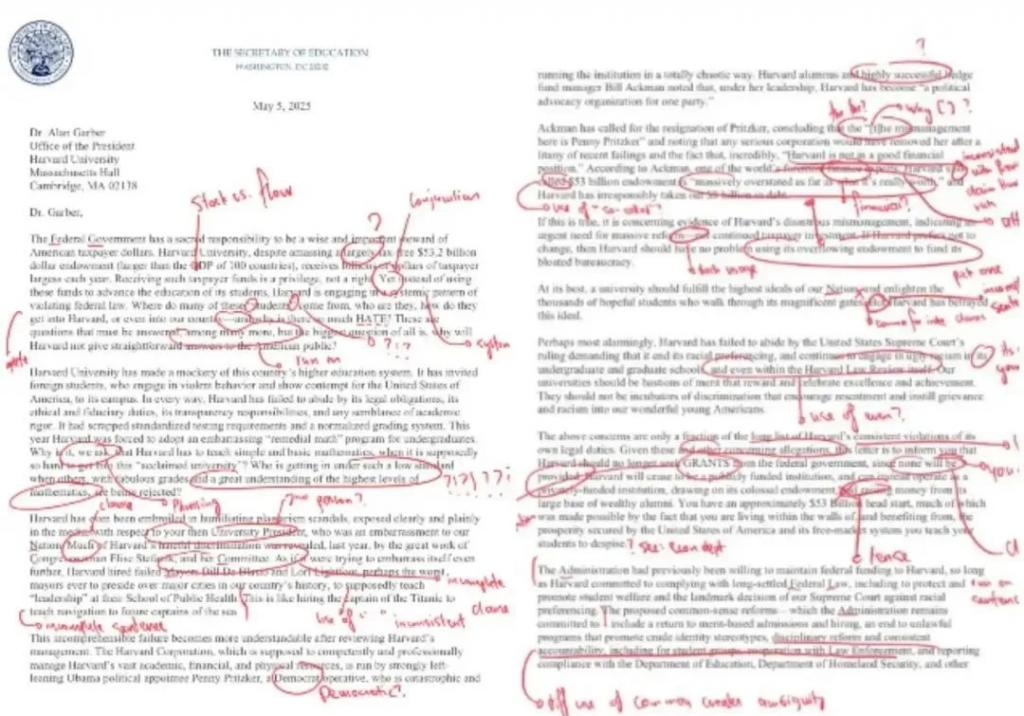 THE SECRETARY OF EDUCATION
WASHINGTON, DC 20202
May 5, 2025
Dr. Alan Garber
Office of the President
Harvard University
Massachusetts Hall
Cambridge, MA 02138
Dr. Garber,
Stock vs. flow
?
Conjunction
The Federal Government has a sacred responsibility to be a wise and important steward of
American taxpayer dollars. Harvard University, despite amassing a largely tax-free $53.2 billion
dollar endowment (larger than the GDP of 100 countries), receives billions of dollars of taxpayer
largess each year. Receiving such taxpayer funds is a privilege, not a right. Yet instead of using
these funds to advance the education of its students, Harvard is engaging in a systemic pattern of
violating federal law. Where do many of these students come from, who are they, how do they
get into Harvard, or even into our country—and why is there so much HATE? These are
questions that must be answered, among many more, but the biggest question of all is, why will
Harvard not give straightforward answers to the American public?
run on
?!?
system
Harvard University has made a mockery of this country's higher education system. It has invited
foreign students, who engage in violent behavior and show contempt for the United States of
America, to its campus. In every way, Harvard has failed to abide by its legal obligations, its
ethical and fiduciary duties, its transparency responsibilities, and any semblance of academic
rigor. It had scrapped standardized testing requirements and a normalized grading system. This
year Harvard was forced to adopt an embarrassing "remedial math" program for undergraduates.
Why is it, we ask, that Harvard has to teach simple and basic mathematics, when it is supposedly
so hard to get into this "acclaimed university"? Who is getting in under such a low standard
when others, with fabulous grades and a great understanding of the highest levels of
mathematics, are being rejected?
clause
Phrasing
2nd person?
Harvard has even been embroiled in humiliating plagiarism scandals, exposed clearly and plainly
in the media with respect to your then University President, who was an embarrassment to our
Nation. Much of Harvard's hateful discrimination was revealed, last year, by the great work of
Congresswoman Elise Stefanik, and her Committee. As if it were trying to embarrass itself even
further, Harvard hired failed Mayors Bill De Blasio and Lori Lightfoot, perhaps the worst
mayors ever to preside over major cities in our country's history, to supposedly teach
"leadership" at their School of Public Health. This is like hiring the captain of the Titanic to
teach navigation to future captains of the sea.
incomplete
clause
incomplete sentence
use of
inconsistent
This incomprehensible failure becomes more understandable after reviewing Harvard's
management. The Harvard Corporation, which is supposed to competently and professionally
manage Harvard's vast academic, financial, and physical resources, is run by strongly left-
leaning Obama political appointee Penny Pritzker, a Democrat operative, who is catastrophic and
Democratic?
?
running the institution in a totally chaotic way. Harvard alumnus and highly successful hedge
fund manager Bill Ackman noted that, under her leadership, Harvard has become "a political
advocacy organization for one party."
why [ ] ?
Ackman has called for the resignation of Pritzker, concluding that the "[t]he mismanagement
here is Penny Pritzker" and noting that any serious corporation would have removed her after a
litany of recent failings and the fact that, incredibly, "Harvard is not in a good financial
position." According to Ackman, one of the world's foremost finance experts, Harvard's so-
called $53 billion endowment is "massively overstated as far as what it's really worth," and
Harvard has irresponsibly taken on $8 billion in debt.
inconsistent
use of "so-called"?
If this is true, it is concerning evidence of Harvard's disastrous mismanagement, indicating an
urgent need for massive reform, not continued taxpayer investment. If Harvard prefers not to
change, then Harvard should have no problem using its overflowing endowment to fund its
bloated bureaucracy.
At its best, a university should fulfill the highest ideals of our Nation and enlighten the
thousands of hopeful students who walk through its magnificent gates. But Harvard has betrayed
this ideal.
Perhaps most alarmingly, Harvard has failed to abide by the United States Supreme Court's
ruling demanding that it end its racial preferencing, and continues to engage in ugly racism in its
undergraduate and graduate schools, and even within the Harvard Law Review itself. Our
universities should be bastions of merit that reward and celebrate excellence and achievement.
They should not be incubators of discrimination that encourage resentment and instill grievance
and racism into our wonderful young Americans.
use of even?
The above concerns are only a fraction of the long list of Harvard's consistent violations of its
own legal duties. Given these and other concerning allegations, this letter is to inform you that
Harvard should no longer seek GRANTS from the federal government, since none will be
provided. Harvard will cease to be a publicly funded institution, and can instead operate as a
privately-funded institution, drawing on its colossal endowment, and raising money from its
large base of wealthy alumni. You have an approximately $53 Billion head start, much of which
was made possible by the fact that you are living within the walls of, and benefiting from, the
prosperity secured by the United States of America and its free-market system you teach your
students to despise.
The Administration had previously been willing to maintain federal funding to Harvard, so long
as Harvard committed to complying with long-settled Federal Law, including to protect and
promote student welfare and the landmark decision of our Supreme Court against racial
preferencing. The proposed common-sense reforms – which the Administration remains
committed to – include a return to merit-based admissions and hiring, an end to unlawful
programs that promote crude identity stereotypes, disciplinary reform and consistent
accountability, including for student groups, cooperation with Law Enforcement, and reporting
compliance with the Department of Education, Department of Homeland Security, and other
run on
sentence
use of commas creates ambiguity